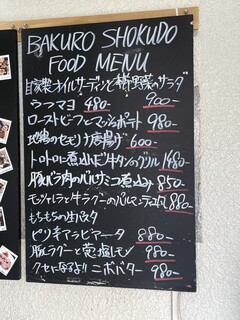 BAKURO SHOKUDO
FOOD MENU
自家製オイルサーディンと 野菜のサラダ
ウフマヨ 480- 900-
ローストビーフとマッシュポテト 980-
地鶏のセモリナ唐揚げ 600-
トロトロに煮込んだ牛タンのグリル 1480-
豚バラ肉のバルサミコ煮込み 850-
モッツァレラと牛ラグーの 880-
もちもちの生パスタ
ピリ辛アラビアータ 880-
豚ラグーと 塩レモン 980-
クセになるよ!! ニボバター 980-